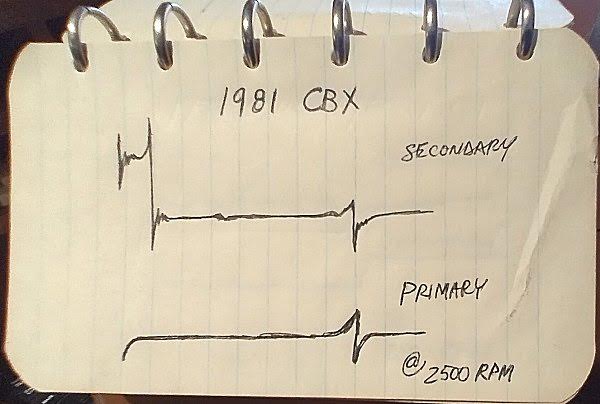 1981 CBX
SECONDARY
PRIMARY
@ 2500 RPM